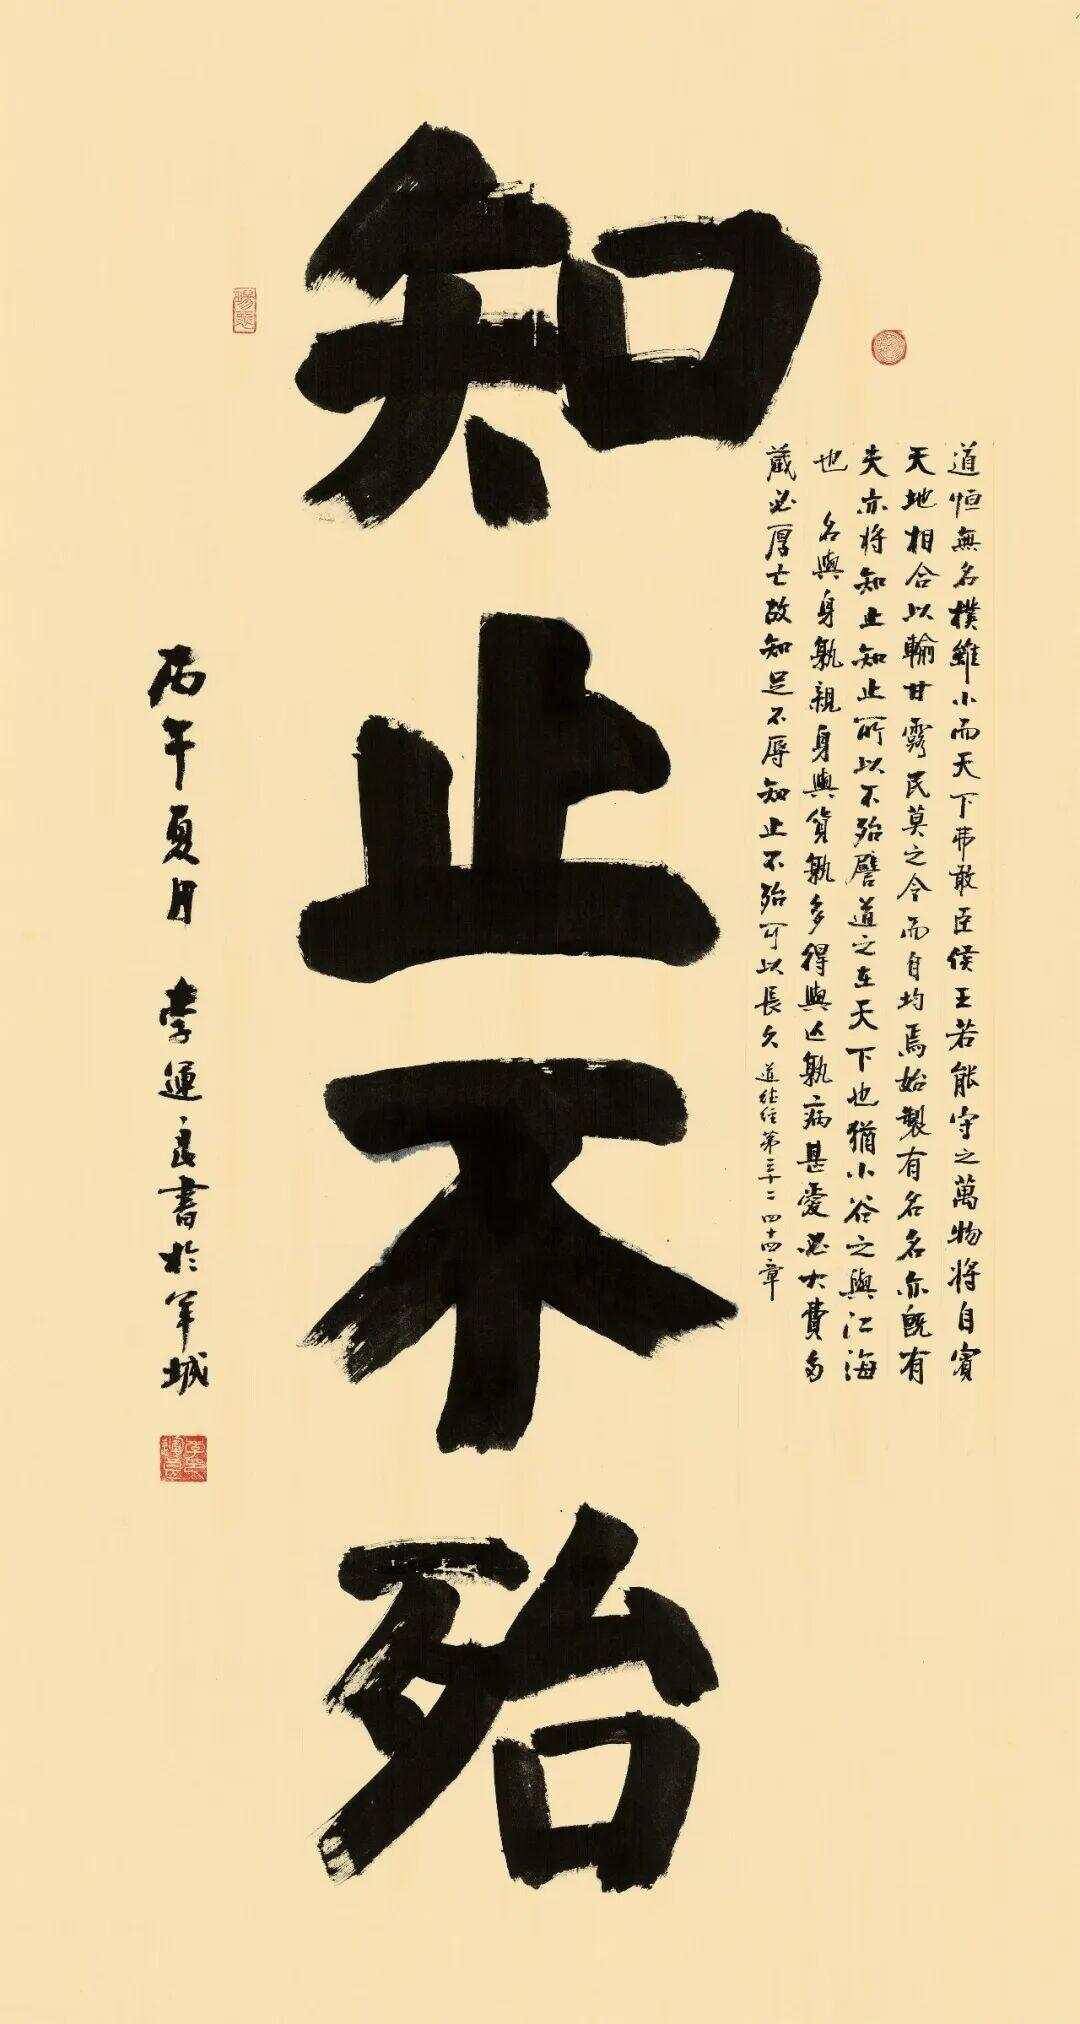 知止不殆
道恒無名樸雖小而天下弗敢臣侯王若能守之萬物將自賓
天地相合以輸甘露民莫之令而自均焉始製有名名亦既有
夫亦將知止知止所以不殆譬道之在天下也猶小谷之與江海
也 名與身孰親身與貨孰多得與亡孰病甚愛必大費多
藏必厚亡故知足不辱知止不殆可以長久 道德经第三十二 四十四章
丙午夏月 李運良書於羊城